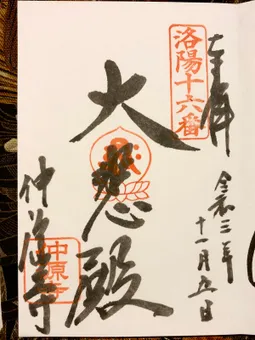 奉拝
洛陽十六番
令和二年
十一月五日
大悲殿
仲源寺